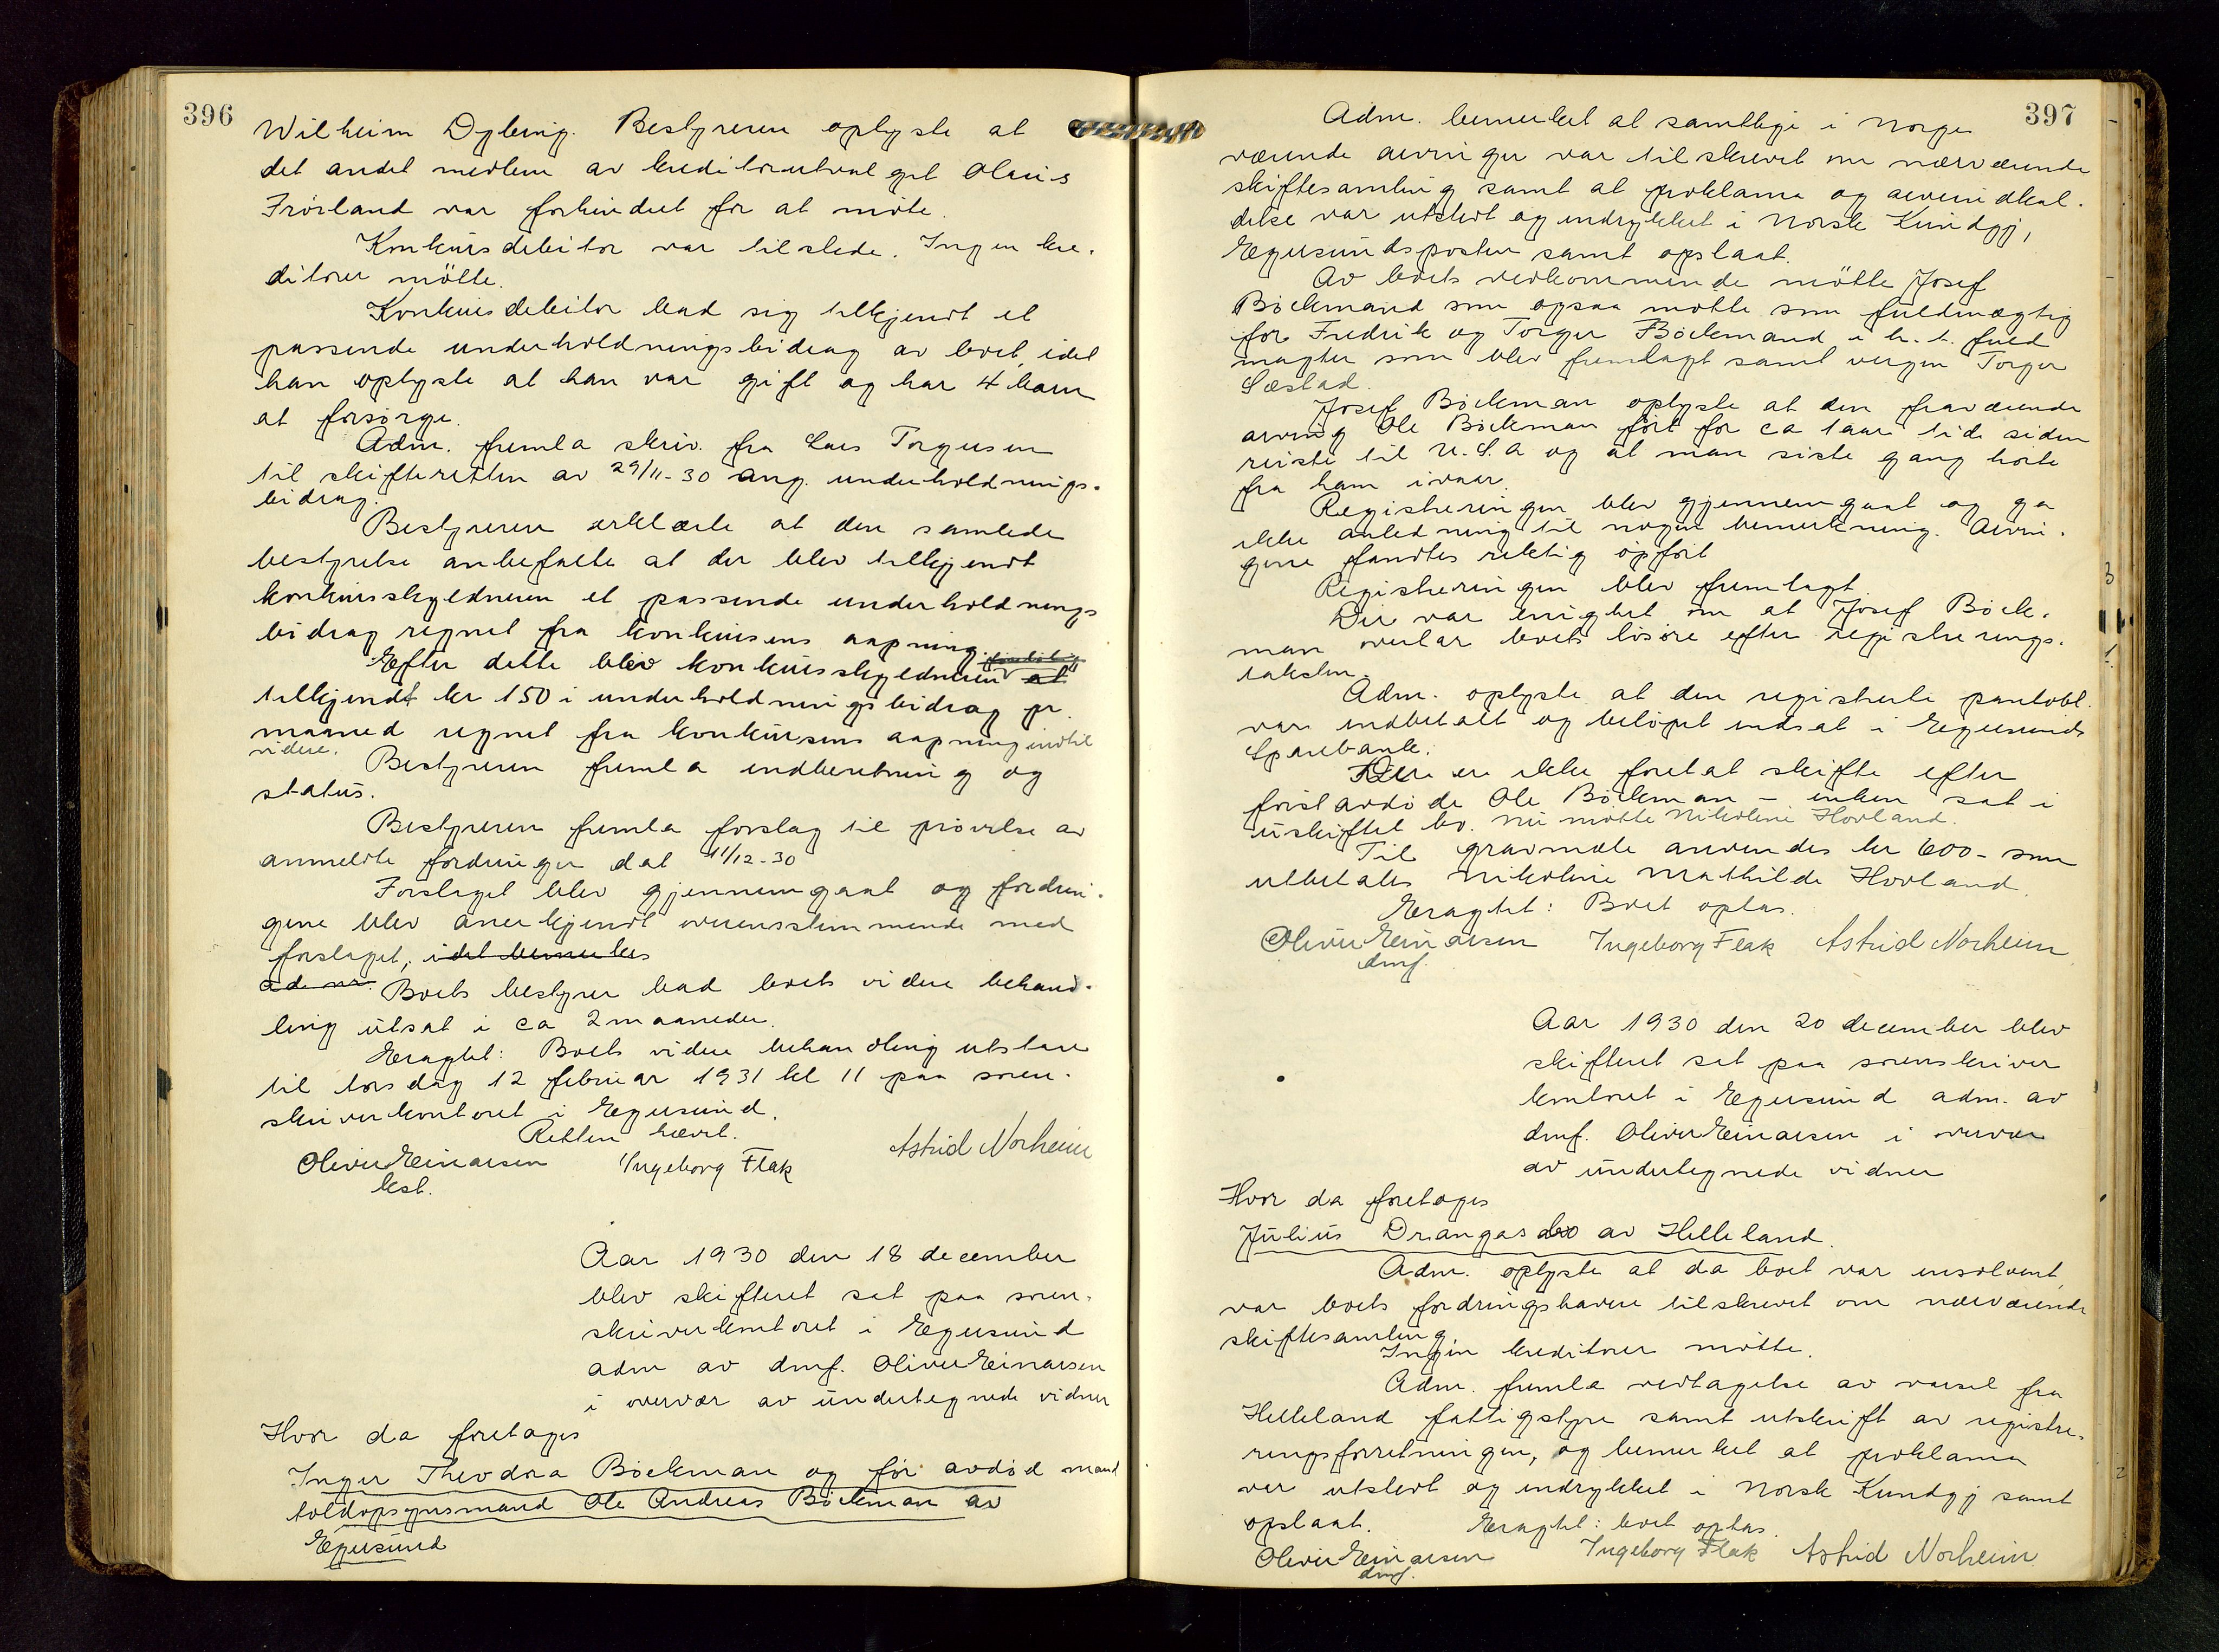 396
Wilheim Dybing. Bestyreren oplyste at
det andet medlem av kreditorutvalget Olaus
Frøsland var forhindret for at møte.
Konkursdebitor var tilstede. Ingen kre-
ditorer møtte.
Konkursdebitor bad sig tilkjendt et
passende underholdningsbidrag av boet, idet
han oplyste at han var gift og har 4 barn
at forsørge.
Adm. fremla skriv. fra Lars Torgersen
til skifteretten av 29/11-30 ang. underholdnings-
bidrag.
Bestyreren erklærte at den samlede
bestyrelse anbefalte at der blev tilkjendt
konkursskyldneren et passende underholdnings
bidrag regnet fra konkursens aapning.
Efter dette blev konkursskyldneren et
tilkjendt kr 150 i underholdningsbidrag pr.
maaned regnet fra konkursens aapning indtil
videre.
Bestyreren fremla indberetning og
status.
Bestyreren fremla forslag til prøvelse av
anmeldte fordringer dat 11/12-30
Forslaget blev gjennemgaat og fordrin-
gene blev anerkjendt overensstemmende med
forslaget, idet bemerkes
ad nr. Boets bestyrer bad boets videre behand-
ling utsat i ca 2 maaneder.
Eragtet: Boets videre behandling utstaar
til torsdag 12 februar 1931 kl 11 paa soren-
skriverkontoret i Egersund.
Retten hævet.
Oliver Einarsen Ingeborg Flak Astrid Norheim
kst.
Aar 1930 den 18 december
blev skifteret sat paa soren-
skriverkontoret i Egersund
adm av dmf. Oliver Einarsen
i overvær av undertegnede vidner
Hvor da foretoges
Inger Theodora Böckman og før avdød mand
toldopsynsmand Ole Andreas Böckman av
Egersund
397
Adm. bemerket at samtlige i Norge
værende arvinger var tilskrevet om nærværende
skiftesamling samt at proklama og arveindkal-
delse var utstedt og indrykket i Norsk Kundgj,
Egersundsposten samt opslaat.
Av boets vedkommende møtte Josef
Böckmand som ogsaa møtte som fuldmægtig
for Fredrik og Torger Böckmand i h. t. fuld
magter som blev fremlagt samt vergen Torger
Sæstad.
Josef Böckman oplyste at den fraværende
arving Ole Böckman først for ca 1 aars tid siden
reiste til U.S.A og at man siste gang hørte
fra ham ivaar.
Registreringen blev gjennemgaat og ga
ikke anledning til nogen bemerkning. Arvin-
gene fandtes riktig opført
Registreringen blev fremlagt.
Der var enighet om at Josef Böck-
man overtar boets løsøre efter registrerings-
taksten.
Adm. oplyste at den registrerte pantobl.
var indbetalt og beløpet indsat i Egersunds
Sparebank.
Der er ikke foretat skifte efter
førstavdøde Ole Böckman – enken sat i
uskiftet bo. Nu møtte Nikoline Hovland.
Til gravmæle anvendes kr 600- som
utbetales Nikoline Mathilde Hovland.
Eragtet: Boet optas.
Oliver Einarsen Ingeborg Flak Astrid Norheim
dmf.
Aar 1930 den 20 december blev
skifteret sat paa sorenskriver
kontoret i Egersund adm. av
dmf. Oliver Einarsen i overvær
av undertegnede vidner
Hvor da foretoges
Julius Drangas bo av Helleland.
Adm. oplyste at da boet var insolvent,
var boets fordringshavere tilskrevet om nærværende
skiftesamling.
Ingen kreditorer møtte.
Adm. fremla vedtagelse av varsel fra
Helleland fattigstyre samt utskrift av registre-
ringsforretningen, og bemerket at proklama
var utstedt og indrykket i Norsk Kundgj samt
opslaat. Eragtet: boet optas.
Oliver Einarsen Ingeborg Flak Astrid Norheim
dmf.